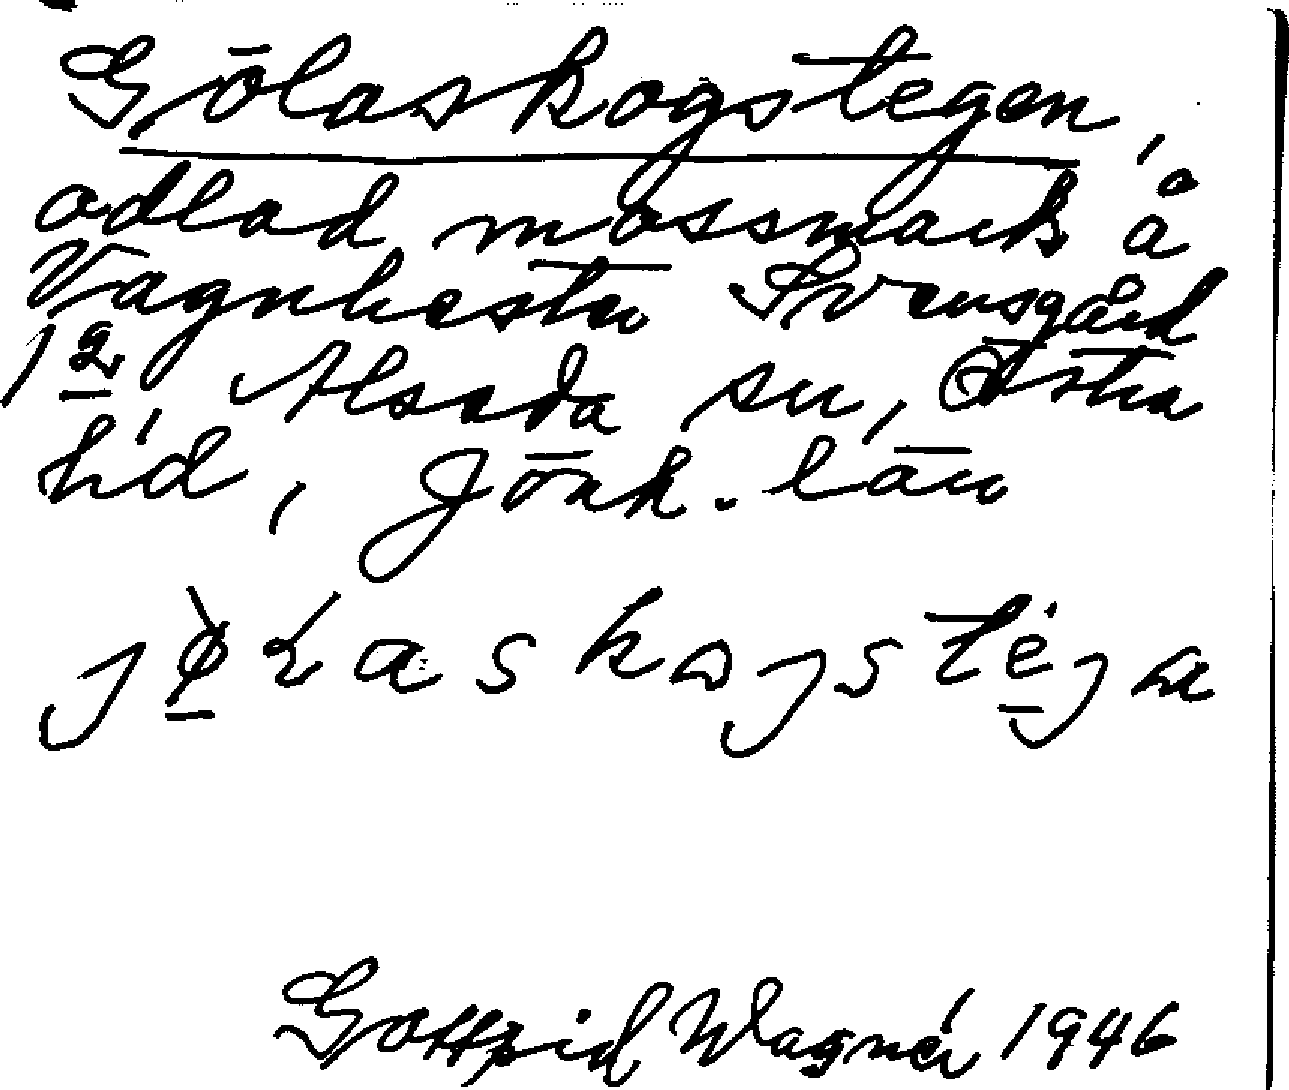 Gölaskogstegen,
odlad mossmark å
Vagnhester Svensgård
1 2, Alseda sn, Östra
hd, Jönk. län
jö̀laskojstéja
Gottfrid Wagnér 1946